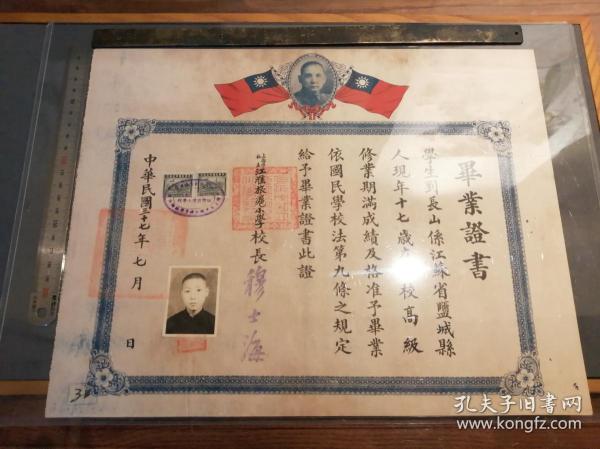 畢業證書
學生劉長山係江蘇省鹽城縣
人現年十七歲在本校高級
修業期滿成績及格准予畢業
依國民學校法第九條之規定
給予畢業證書此證
江淮旅滬小學校長 穆士海
中華民國三十七年七月 日
3
孔夫子旧书网
book.kongfz.com